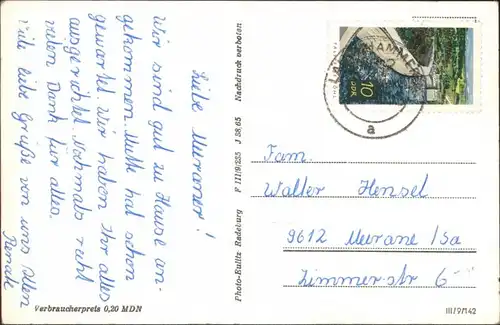 Liebe Meraner!
Wir sind gut zu Hause an-
gekommen. Mutti hat schon
gewartet. Wir haben Ihr alles
ausgerichtet. Nochmals recht
vielen Dank für alles.
Viele liebe Grüße von uns allen
Renate
Verbraucherpreis 0,20 MDN
Photo-Kulitz Radeburg F III/9/235 J 38,65 Nachdruck verboten
10
DDR
a
Fam.
Walter Hensel
9612 Meerane /Sa
Zimmerstr 6
III/9/142